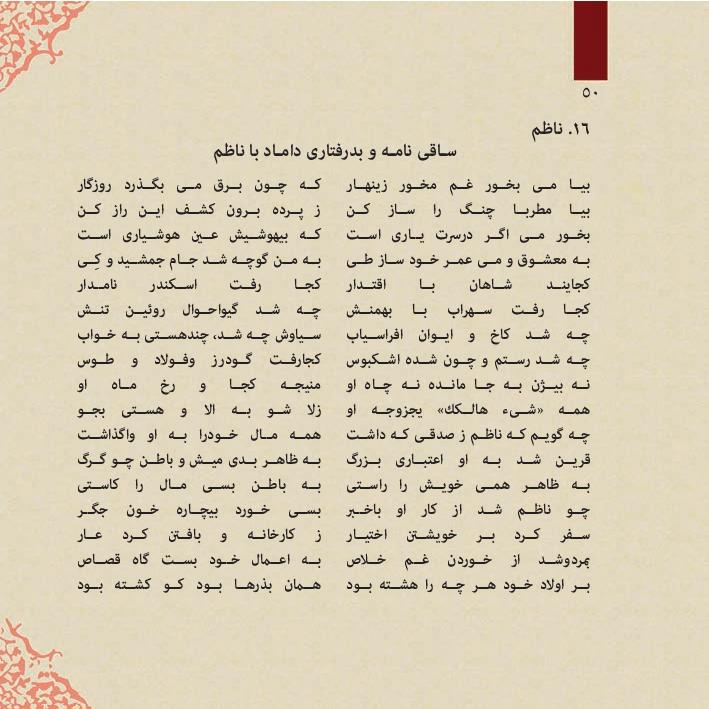 ۵۰
۱۶. ناظم
ساقی نامه و بدرفتاری داماد با ناظم
بیا می بخور غم مخور زینهار که چون برق می بگذرد روزگار
بیا مطربا چنگ را ساز کن ز پرده برون کشف این راز کن
بخور می اگر درسرت یاری است که بیهوشیش عین هوشیاری است
به معشوق و می عمر خود ساز طی به من گوچه شد جام جمشید و کِی
کجایند شاهان با اقتدار کجا رفت اسکندر نامدار
کجا رفت سهراب با بهمنش چه شد گیواحوال روئین تنش
چه شد کاخ و ایوان افراسیاب سیاوش چه شد، چندهستی به خواب
چه شد رستم و چون شده اشکبوس کجارفت گودرز وفولاد و طوس
نه بیژن به جا مانده نه چاه او منیجه کجا و رخ ماه او
همه «شیء هالک» یجزوجه او زلا شو به الا و هستی بجو
چه گویم که ناظم ز صدقی که داشت همه مال خودرا به او واگذاشت
قرین شد به او اعتباری بزرگ به ظاهر بدی میش و باطن چو گرگ
به ظاهر همی خویش را راستی به باطن بسی مال را کاستی
چو ناظم شد از کار او باخبر بسی خورد بیچاره خون جگر
سفر کرد بر خویشتن اختیار ز کارخانه و بافتن کرد عار
بمردوشد از خوردن غم خلاص به اعمال خود بست گاه قصاص
بر اولاد خود هر چه را هشته بود همان بذرها بود کو کشته بود